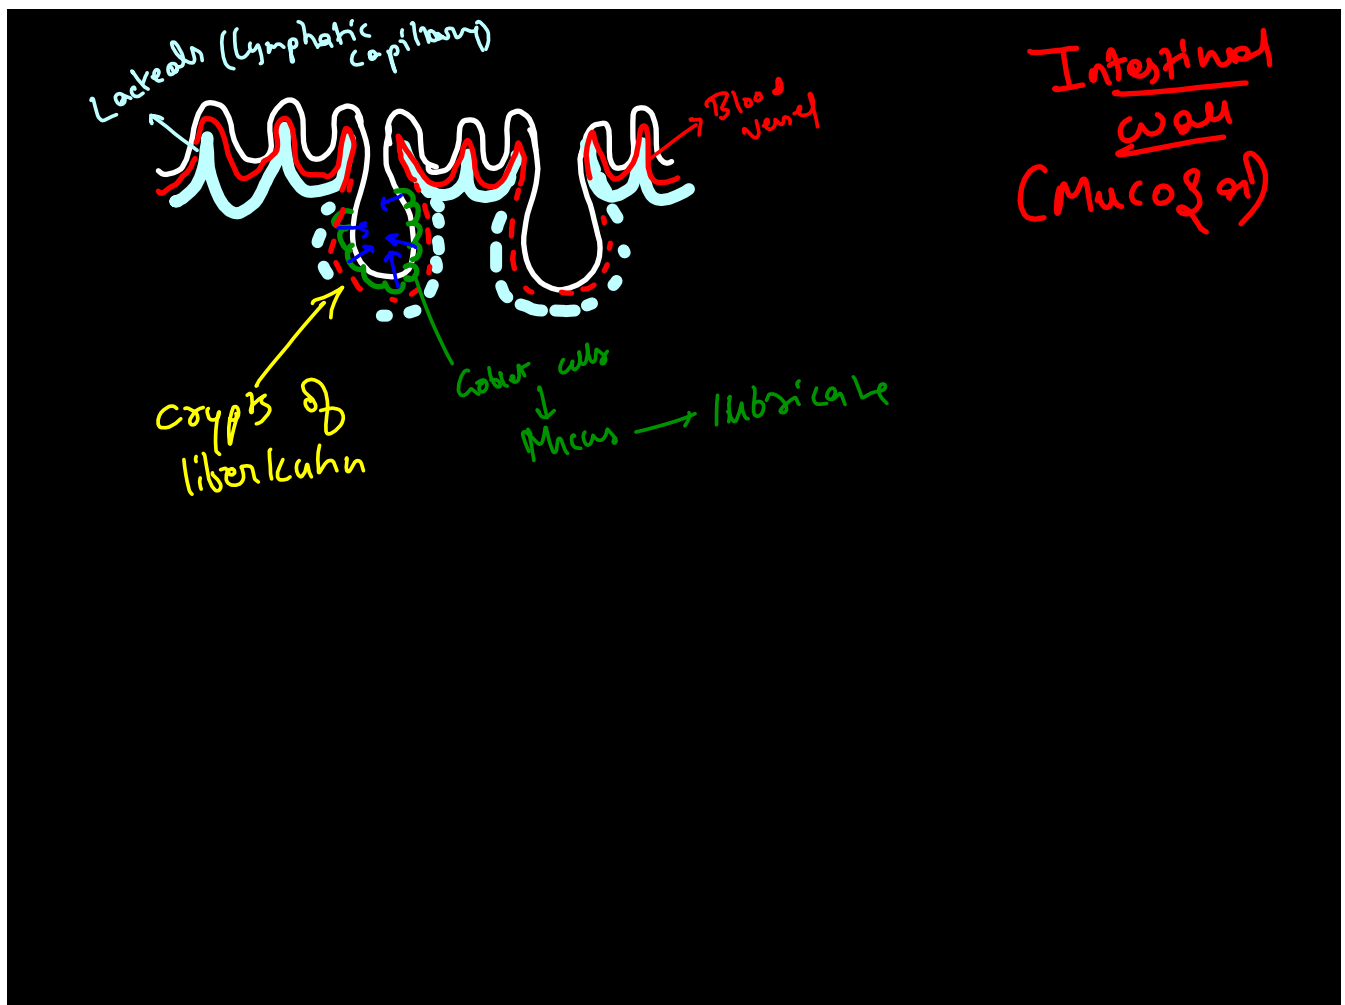 Lacteals (Lymphatic
capillary)
Blood
vessel
Intestinal
wall
(Mucosal)
Goblet cells
Mucus → lubricate
Crypts of
liberkuhn